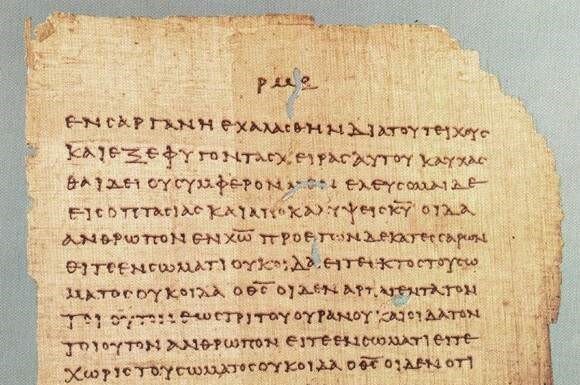 ΡΜΕ
ΕΝϹΑΡΓΑΝΗΕΧΑΛΑϹΘΗΝΔΙΑΤΟΥΤΕΙΧΟΥϹ
ΚΑΙΕΞΕΦΥΓΟΝΤΑϹΧΕΙΡΑϹΑΥΤΟΥΚΑΥΧΑϹ
ΘΑΙΔΕΙΟΥϹΥΜΦΕΡΟΝΜΕΝΕΛΕΥϹΟΜΑΙΔΕ
ΕΙϹΟΠΤΑϹΙΑϹΚΑΙΑΠΟΚΑΛΥΨΕΙϹΚ̅Υ̅ΟΙΔΑ
ΑΝΘΡΩΠΟΝΕΝΧ̅Ω̅ΠΡΟΕΤΩΝΔΕΚΑΤΕϹϹΑΡΩΝ
ΕΙΤΕΕΝϹΩΜΑΤΙΟΥΚΟΙΔΑΕΙΤΕΕΚΤΟϹΤΟΥϹΩ
ΜΑΤΟϹΟΥΚΟΙΔΑΟΘ̅Ϲ̅ΟΙΔΕΝΑΡΠΑΓΕΝΤΑΤΟΝ
ΤΟΙΟΥΤΟΝΕΩϹΤΡΙΤΟΥΟΥΡΑΝΟΥΚΑΙΟΙΔΑΤΟΝ
ΤΟΙΟΥΤΟΝΑΝΘΡΩΠΟΝΕΙΤΕΕΝϹΩΜΑΤΙΕΙΤΕ
ΧΩΡΙϹΤΟΥϹΩΜΑΤΟϹΟΥΚΟΙΔΑΟΘ̅Ϲ̅ΟΙΔΕΝΟΤΙ